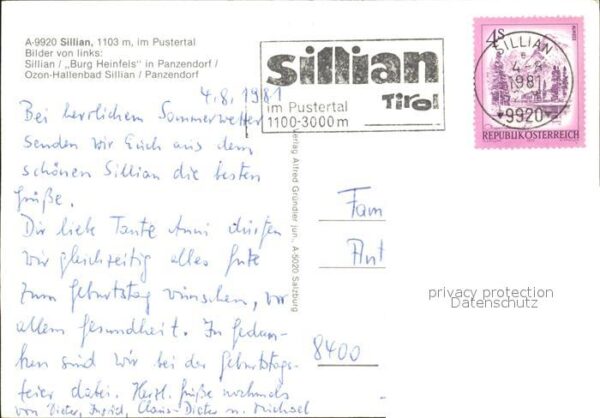 A-9920 Sillian, 1103 m, im Pustertal
Bilder von links:
Sillian / „Burg Heinfels" in Panzendorf /
Ozon-Hallenbad Sillian / Panzendorf
sillian
Tirol
im Pustertal
1100-3000 m
4S
SILLIAN
4.-8.
1981
9920
REPUBLIK ÖSTERREICH
4.8.1981
Bei herrlichem Sommerwetter
senden wir Euch aus dem
schönen Sillian die besten
Grüße.
Dir liebe Tante Anni dürfen
wir gleichzeitig alles Gute
zum Geburtstag wünschen, vor
allem Gesundheit. In Gedan-
ken sind wir bei der Geburtstags-
feier dabei. Herzl. Grüße nochmals
von Dieter, Ingrid, Claus-Dieter u. Michael
Verlag Alfred Gründler jun., A-5020 Salzburg
Fam
8400
privacy protection
Datenschutz